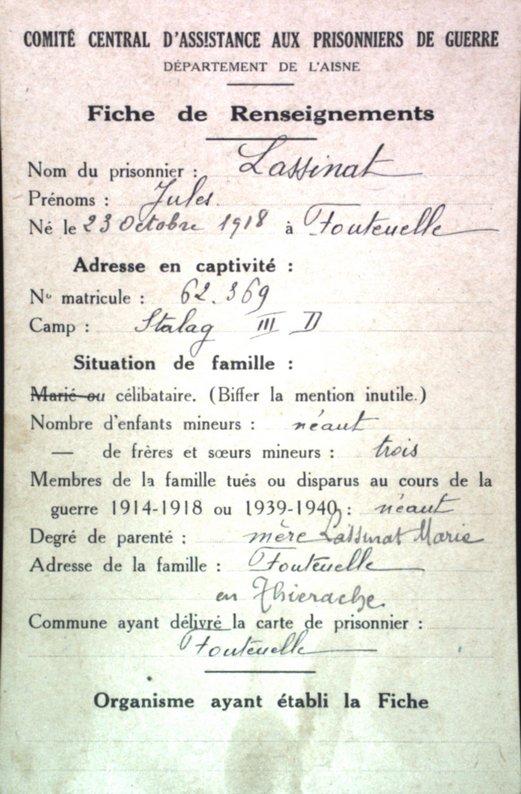 COMITÉ CENTRAL D'ASSISTANCE AUX PRISONNIERS DE GUERRE
DÉPARTEMENT DE L'AISNE
Fiche de Renseignements
Nom du prisonnier : Lassinat
Prénoms : Jules
Né le 23 Octobre 1918 à Fontenelle
Adresse en captivité :
No matricule : 62.369
Camp : Stalag III D
Situation de famille :
Marié ou célibataire. (Biffer la mention inutile.)
Nombre d'enfants mineurs : néant
— de frères et sœurs mineurs : trois
Membres de la famille tués ou disparus au cours de la
guerre 1914-1918 ou 1939-1940 : néant
Degré de parenté : mère Lassinat Marie
Adresse de la famille : Fontenelle
en Thierache
Commune ayant délivré la carte de prisonnier :
Fontenelle
Organisme ayant établi la Fiche